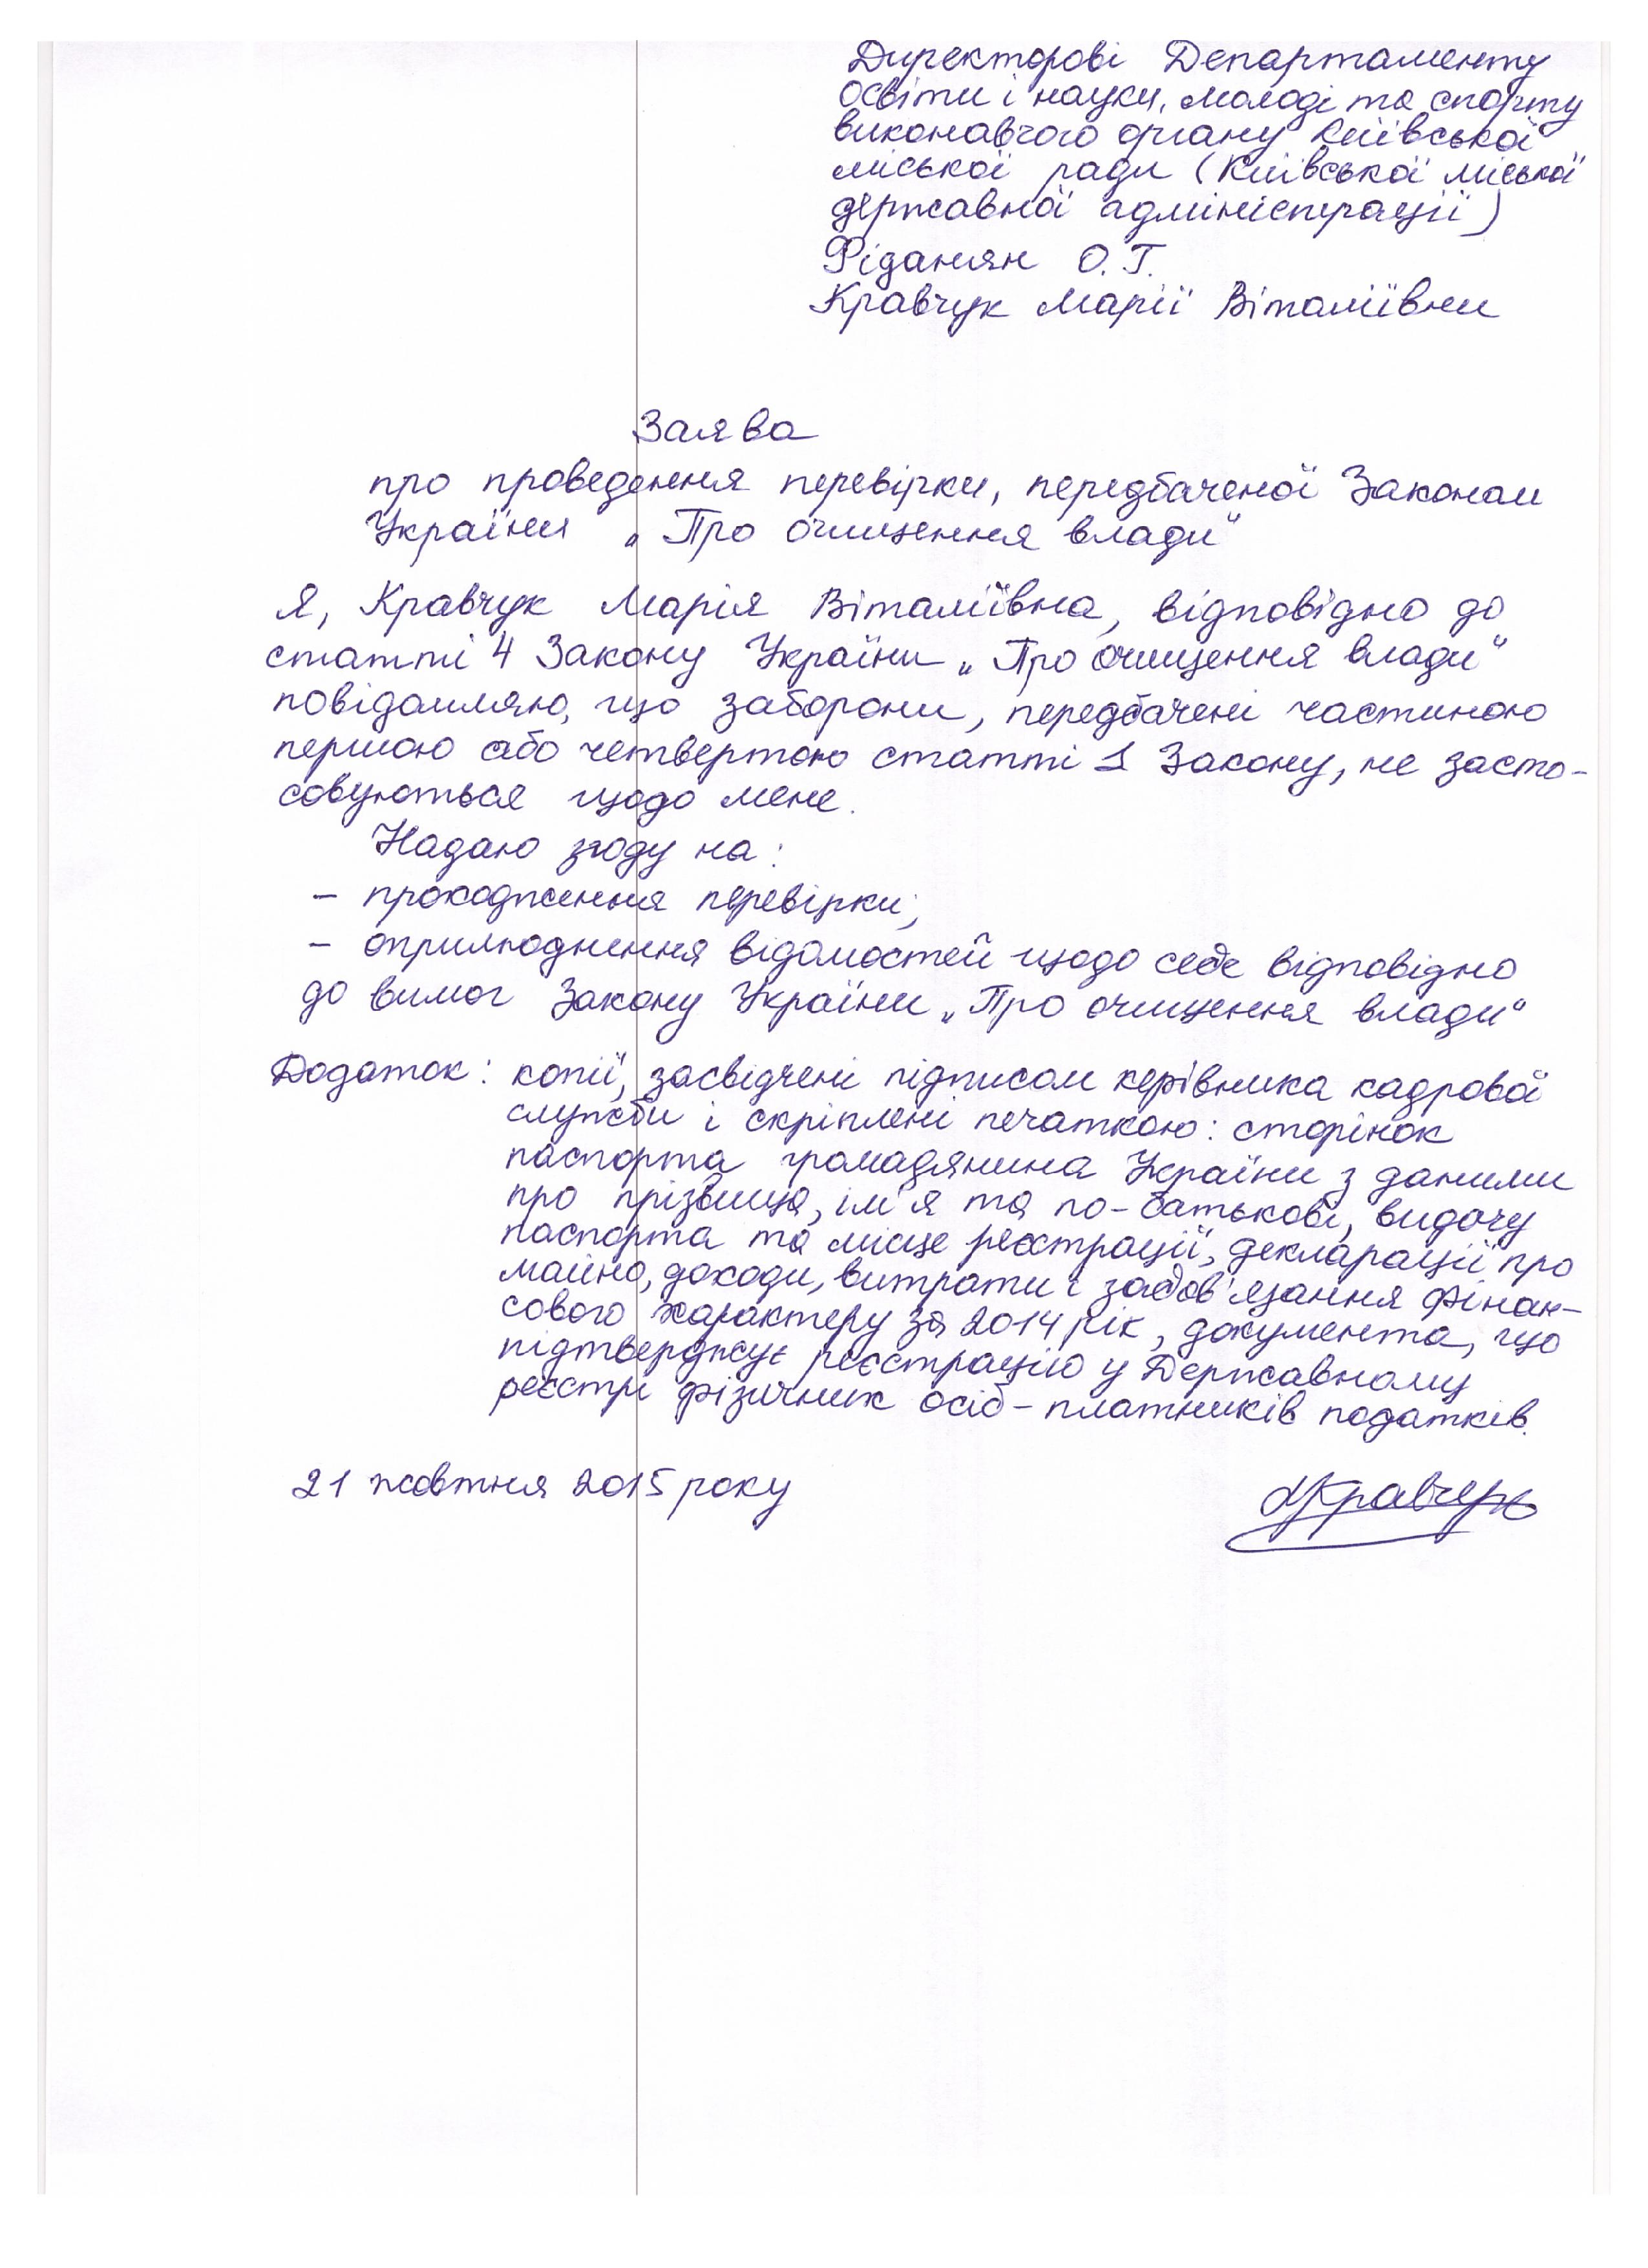 Директорові Департаменту
освіти і науки, молоді та спорту
виконавчого органу Київської
міської ради (Київської міської
державної адміністрації)
Фіданян О.Г.
Кравчук Марії Віталіївни
Заява
про проведення перевірки, передбаченої Законом
України „Про очищення влади"
Я, Кравчук Марія Віталіївна, відповідно до
статті 4 Закону України „Про очищення влади"
повідомляю, що заборони, передбачені частиною
першою або четвертою статті 1 Закону, не засто-
совуються щодо мене.
Надаю згоду на:
- проходження перевірки;
- оприлюднення відомостей щодо себе відповідно
до вимог Закону України „Про очищення влади"
Додаток: копії, засвідчені підписом керівника кадрової
служби і скріплені печаткою: сторінок
паспорта громадянина України з даними
про прізвище, ім'я та по-батькові, видачу
паспорта та місце реєстрації, декларації про
майно, доходи, витрати і зобов'язання фінан-
сового характеру за 2014 рік, документа, що
підтверджує реєстрацію у Державному
реєстрі фізичних осіб-платників податків.
21 жовтня 2015 року
МКравчук